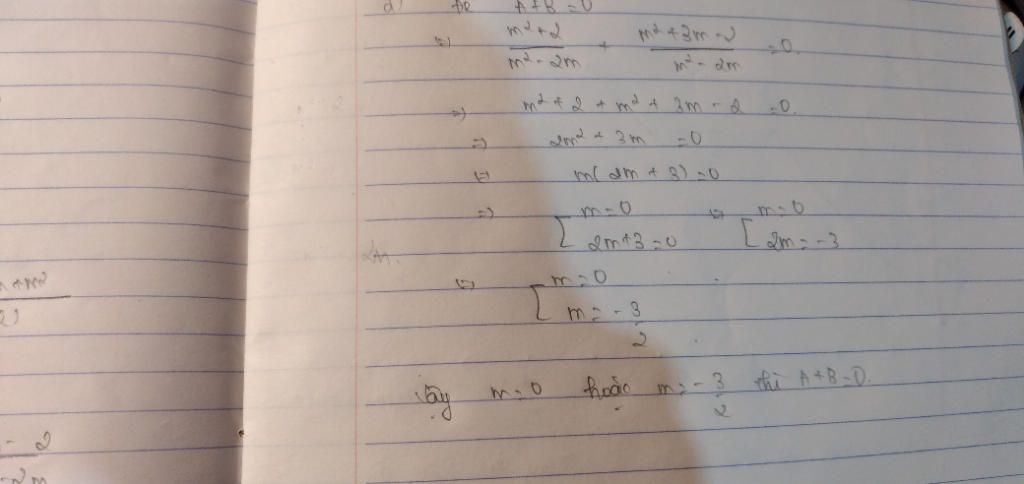 d) Để A+B=0
=> m²+2 / m²-2m + m²+3m-2 / m²-2m =0.
=> m²+2+m²+3m-2 =0.
=> 2m²+3m =0
<=> m(2m+3)=0
=> [ m=0 <=> [ m=0
2m+3=0 2m=-3
<=> [ m=0
m=-3/2
Vậy m=0 hoặc m=-3/2 thì A+B=0.
+m²
- 2
-2m